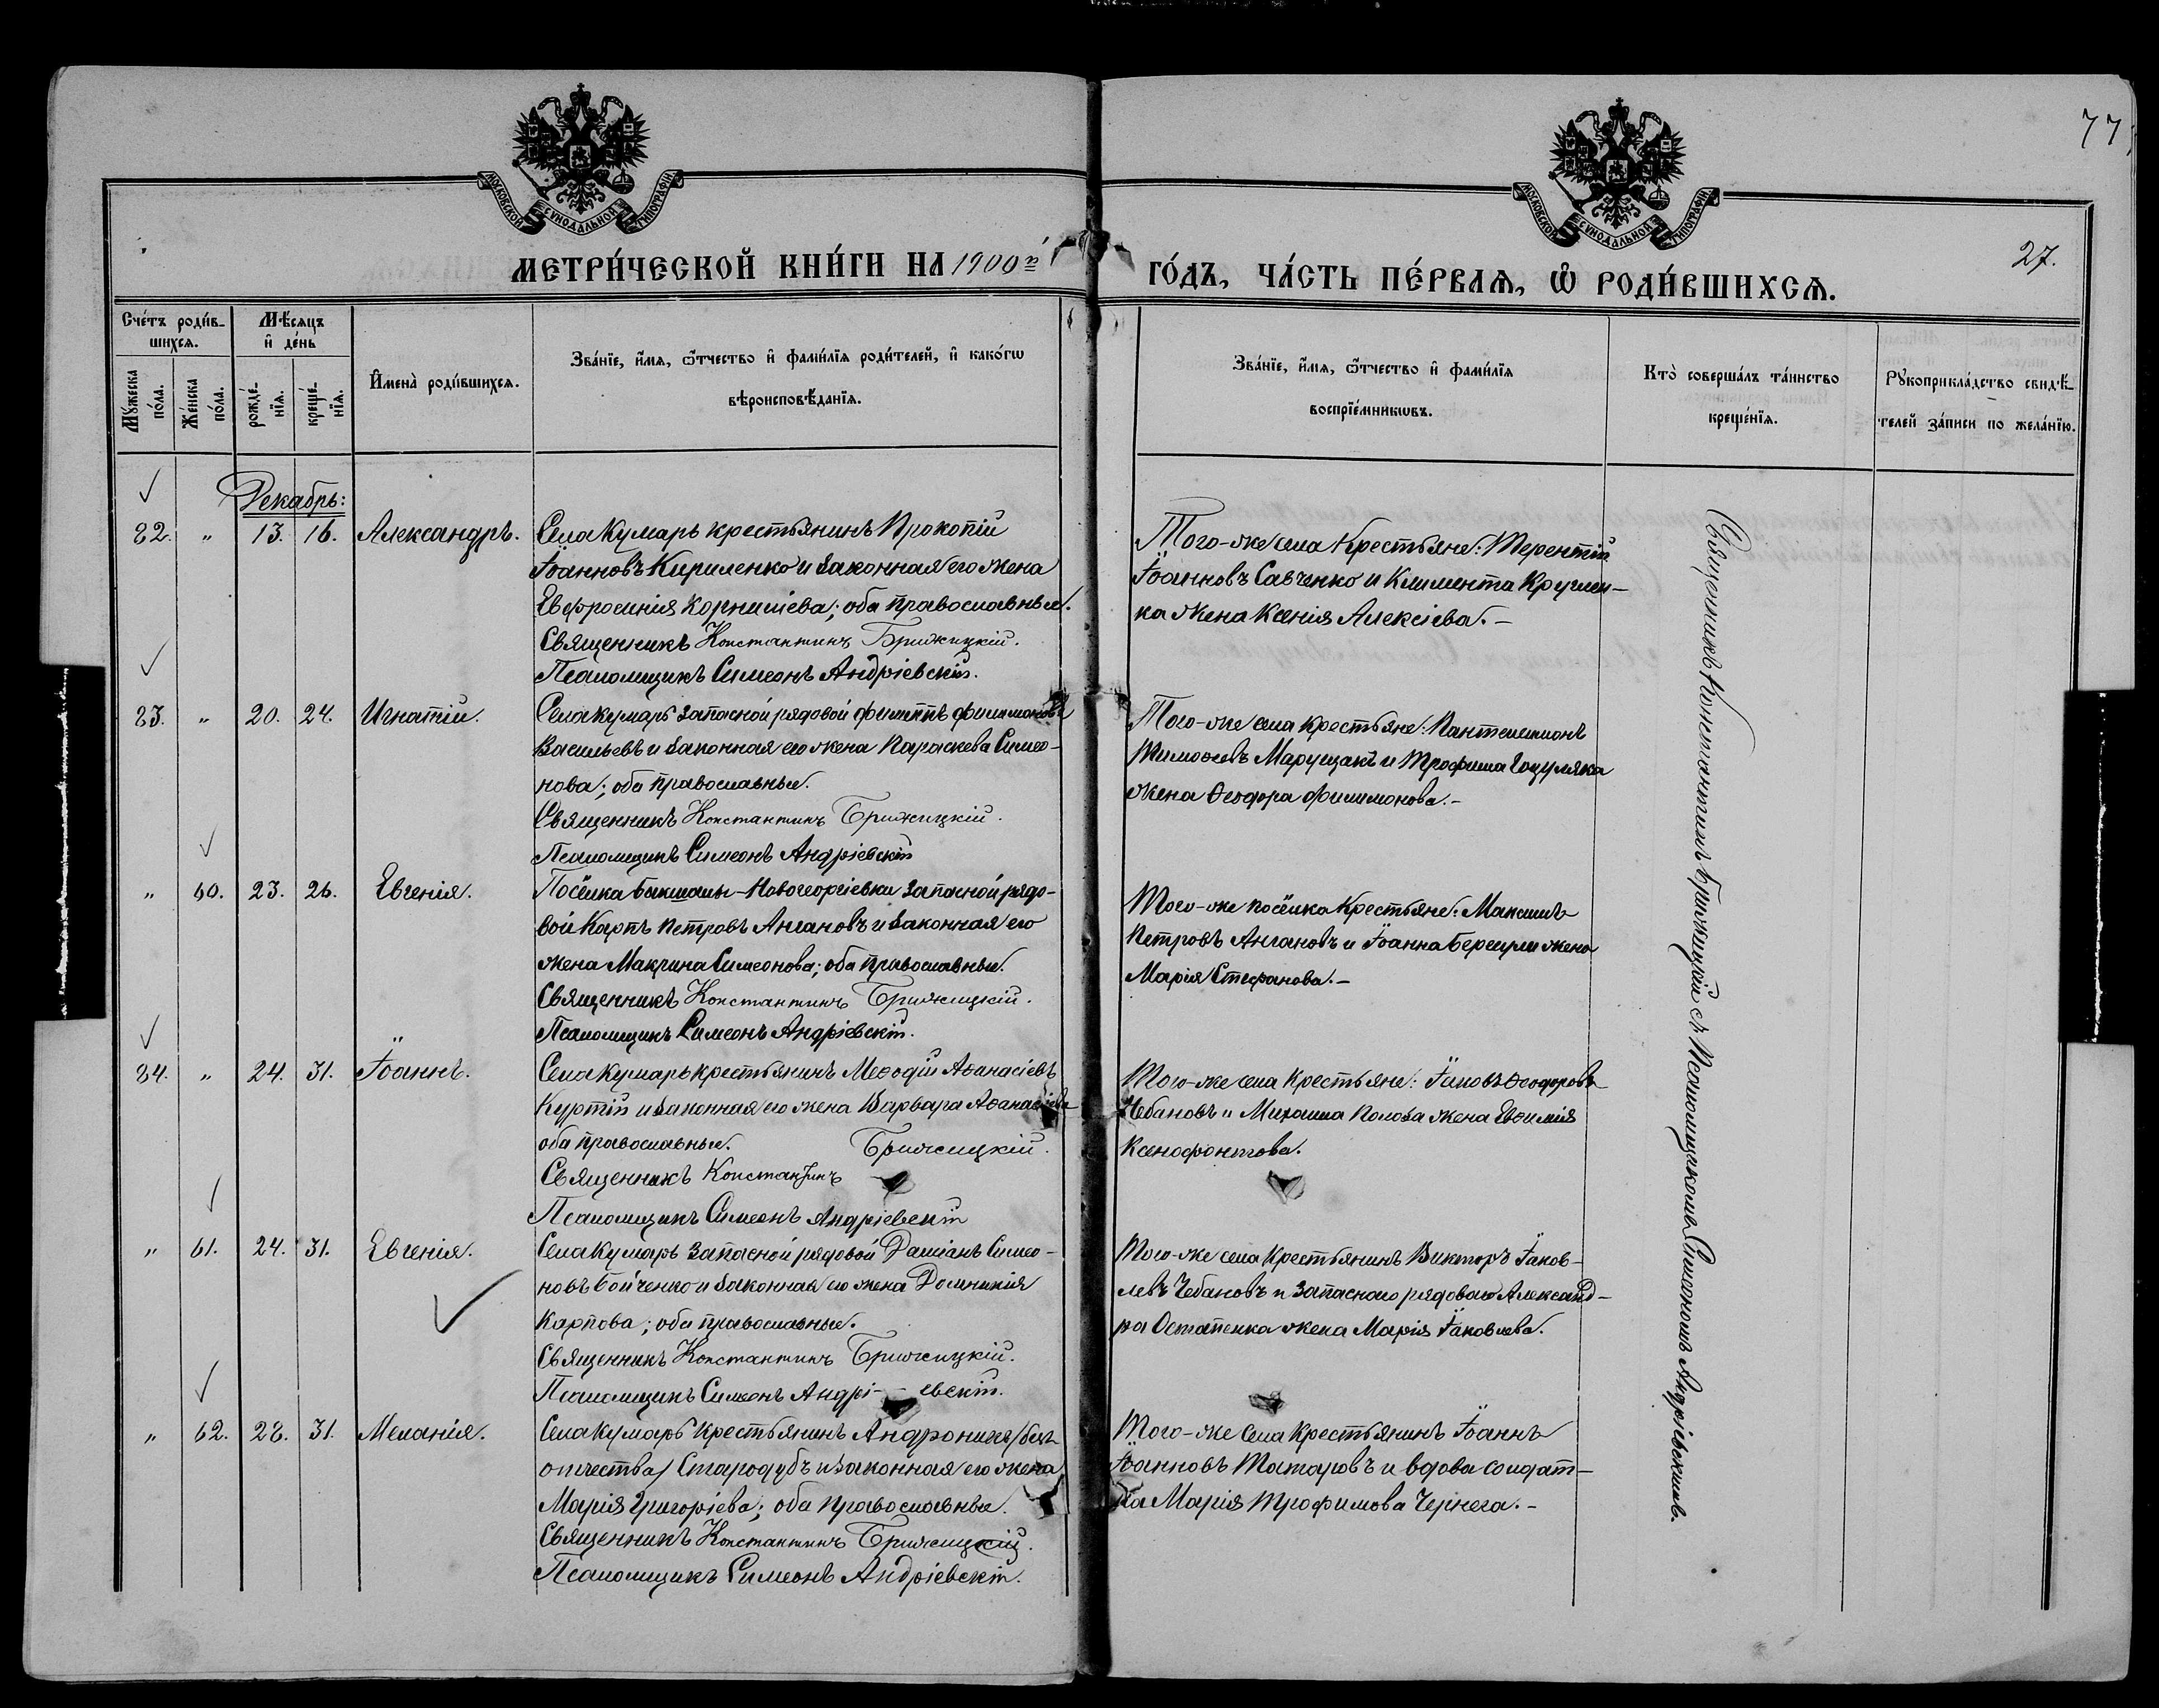 77
МОСКОВСКОЙ СУНОДАЛЬНОЙ ТИПОГРАФІИ
МОСКОВСКОЙ СУНОДАЛЬНОЙ ТИПОГРАФІИ
27.
МЕТРИ́ЧЕСКОЙ КНИ́ГИ НА 1900й
ГО́ДЪ, ЧА́СТЬ ПЕ́РВАѦ, Ѡ РОДИ́ВШИХСѦ.
Сче́тъ роди́в-
шихсѧ.
Мꙋ́жеска по́ла.
Же́нска по́ла.
Мѣ́сяцъ и де́нь
рожде́-нїѧ.
креще́-нїѧ.
Имена̀ роди́вшихсѧ.
Зва́нїе, и́мѧ, ѻ́тчество и фами́лїѧ роди́телей, и како́гѡ
вѣроисповѣ́данїѧ.
Зва́нїе, и́мѧ, ѻ́тчество и фами́лїѧ
воспрїе́мникѡвъ.
Кто̀ соверша́лъ та́инство
креще́нїѧ.
Рꙋкоприкла́дство свидѣ́-
телей за́писи по жела́нїю.
Декабрь:
82. " 13. 16. Александръ.
Села Кумаръ крестьянинъ Прокопій
Іоанновъ Кириленко и законная его жена
Евфросинія Корнилієва; оба православные.
Священникъ Константинъ Брижицкій.
Псаломщикъ Симеонъ Андріевскій.
Того-же села крестьяне: Терентій
Іоанновъ Савченко и Климента Круглен-
ка жена Ксенія Алексіева.-
83. " 20. 24. Игнатій.
Села Кумаръ запасной рядовой Филиппъ Филимоновъ
Васильевъ и законная его жена Параскева Симео-
нова; оба православные.
Священникъ Константинъ Брижицкій.
Псаломщикъ Симеонъ Андріевскій
Того-же села крестьяне: Пантелеимонъ
Тимоѳеевъ Марущакъ и Трофима Гоцуляка
жена Ѳеодора Филимонова.-
" 60. 23. 26. Евгенія.
Посёлка Бакшалы-Новогеоргіевки запасной рядо-
вой Карпъ Петровъ Ангановъ и законная его
жена Макрина Симеонова; оба православные.
Священникъ Константинъ Брижицкій.
Псаломщикъ Симеонъ Андріевскій.
Того-же посёлка крестьяне: Максимъ
Петровъ Ангановъ и Іоанна жена
Марія Стефанова.-
84. " 24. 31. Іоаннъ.
Села Кумаръ крестьянинъ Меѳодій Аѳанасіевъ
Куртій и законная его жена Варвара Аѳанасіева
оба православные.
Брижицкій.
Священникъ Константинъ
Псаломщикъ Симеонъ Андріевскій
Того-же села крестьяне: Іаковъ Ѳеодоровъ
Чебановъ и Михаила Полоза жена Евѳимія
Ксенофонтова.
" 61. 24. 31. Евгенія.
Села Кумаръ запасной рядовой Даміанъ Симео-
новъ Бойченко и законная его жена Домникія
Карпова; оба православные.
Священникъ Константинъ Брижицкій.
Псаломщикъ Симеонъ Андрі--евскій.
Того-же села крестьянинъ Викторъ Іаков-
левъ Чебановъ и запасного рядоваго Александ-
ра Остапенка жена Марія Іаковлева.
" 62. 28. 31. Меланія.
Села Кумаръ крестьянинъ Андроникъ /безъ
отчества/ Стародубъ и законная его жена
Марія Григоріева; оба православные.
Священникъ Константинъ Брижицкій.
Псаломщикъ Симеонъ Андріевскій.
Того-же села крестьянинъ Іоаннъ
Іоанновъ Татаровъ и вдова солдат-
ка Марія Трофимова Чернега.-
Священникъ Константинъ Брижицкій съ Псаломщикомъ Симеономъ Андріевскимъ.